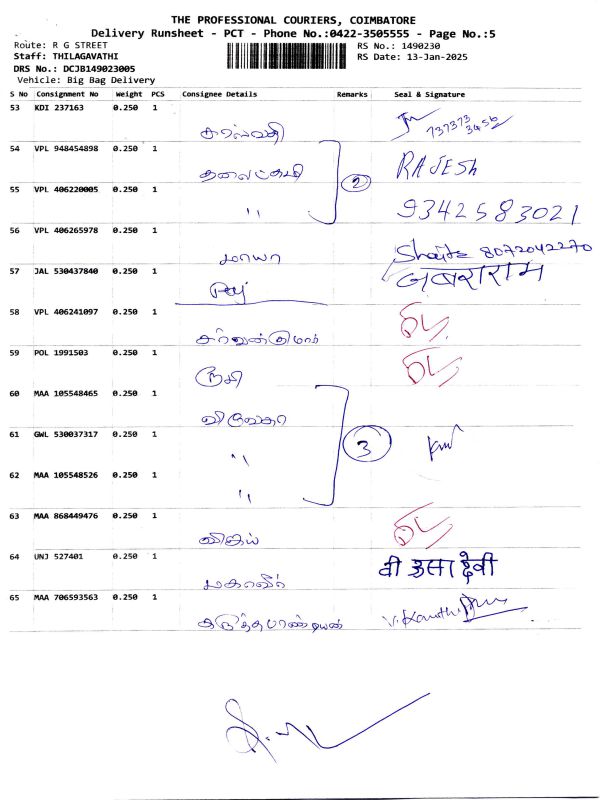 THE PROFESSIONAL COURIERS, COIMBATORE
Delivery Runsheet - PCT - Phone No.:0422-3505555 - Page No.:5
Route: R G STREET
RS No.: 1490230
Staff: THILAGAVATHI
RS Date: 13-Jan-2025
DRS No.: DCJB149023005
Vehicle: Big Bag Delivery
S No Consignment No Weight PCS Consignee Details Remarks Seal & Signature
53 KDI 237163 0.250 1
737373 3456
54 VPL 948454898 0.250 1
2 RAJESH
55 VPL 406220005 0.250 1
" 9342583021
56 VPL 406265978 0.250 1
மாயா 8072042270
57 JAL 530437840 0.250 1
58 VPL 406241097 0.250 1
சரவணகுமார்
59 POL 1991503 0.250 1
ரூபி
60 MAA 105548465 0.250 1
61 GWL 530037317 0.250 1
" 3
62 MAA 105548526 0.250 1
"
63 MAA 868449476 0.250 1
விஜய்
64 UNJ 527401 0.250 1
மகாவீர் वी उसा देवी
65 MAA 706593563 0.250 1